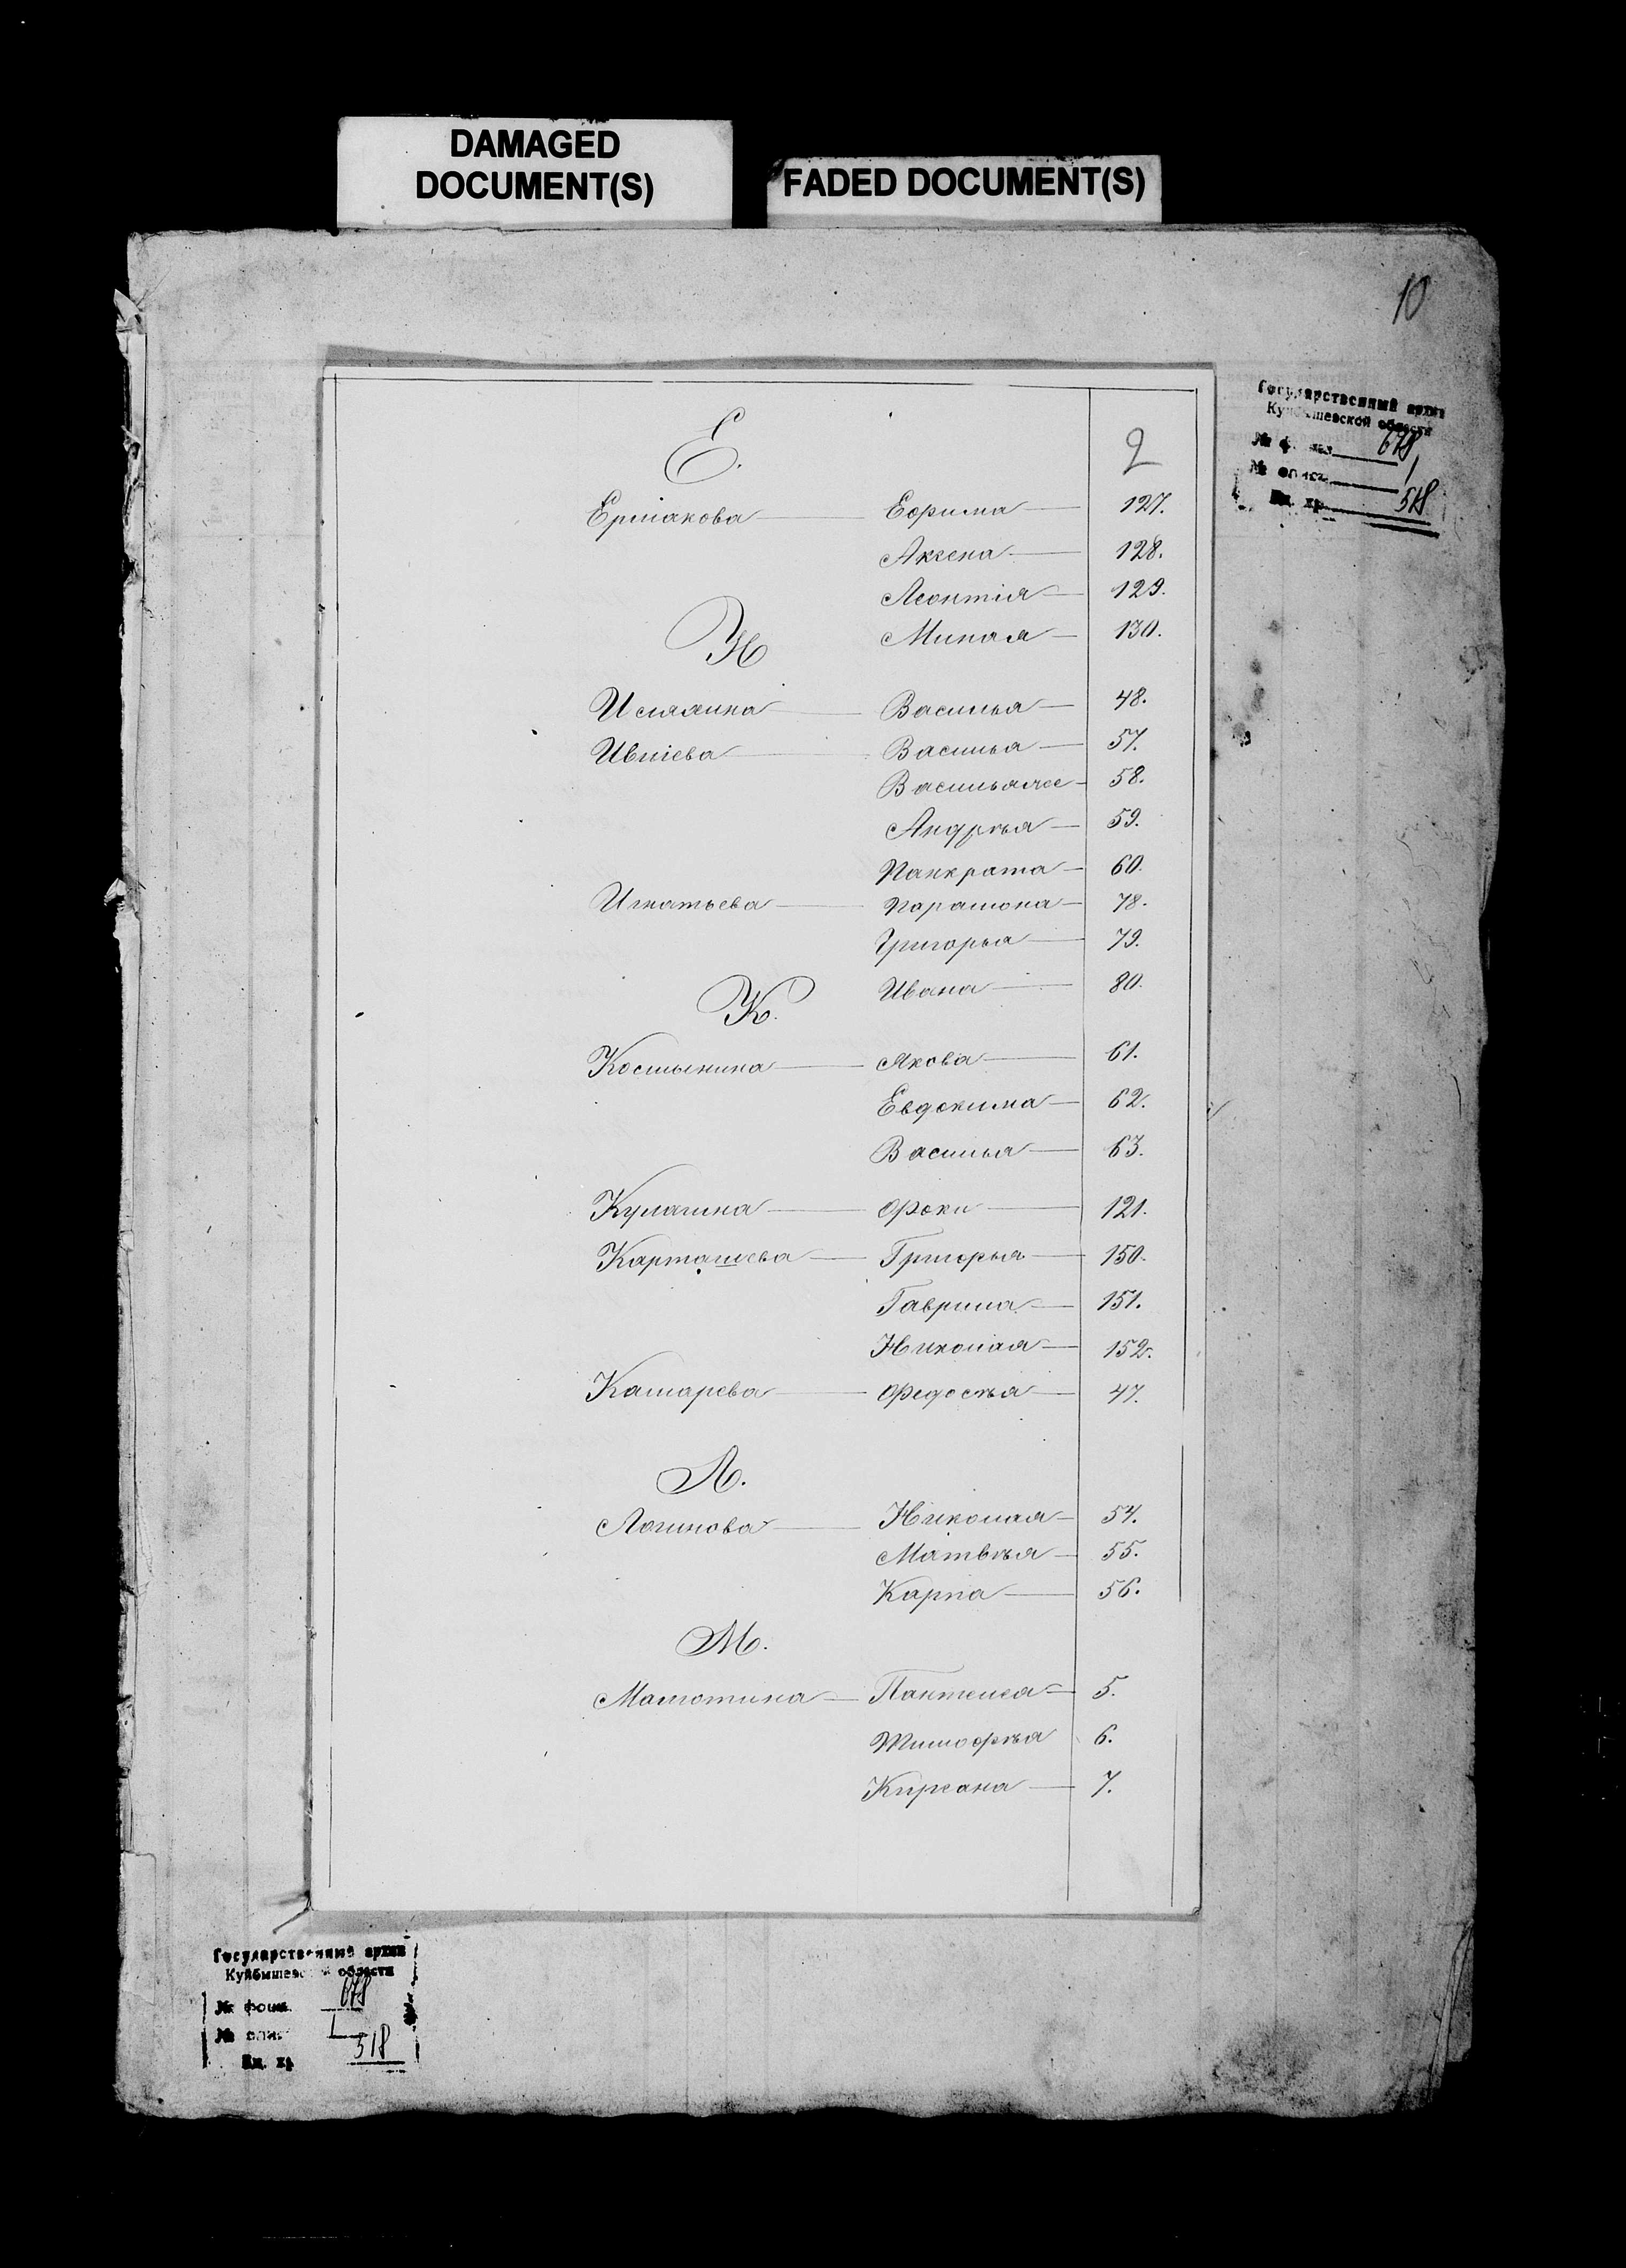 DAMAGED
DOCUMENT(S)
FADED DOCUMENT(S)
10
Государственный архив
Куйбышевской области
№ 678
№ 1
Ед. хр. 518
Е.
2
Ермакова Ефима 127.
Аксена 128.
Леонтія 129.
Миная 130.
И
Исляэина Василья 48.
Ивлiева Василья 57.
Васильяже 58.
Андрѣя 59.
Панкрата 60.
Игнатьева Парамона 78.
Григорья 79.
Ивана 80.
К.
Костынина Якова 61.
Евдокима 62.
Василья 63.
Кулагина Фоки 121.
Карташева Григорья 150.
Гаврила 151.
Николая 152.
Кашарева Федосѣя 47.
Л.
Логинова Николая 54.
Матвѣя 55.
Карпа 56.
М.
Малютина Пантелея 5.
Тимофѣя 6.
Кирсана 7.
Государственный архив
Куйбышевской области
№ фонд. 678
№ опис 1
Ед. хр 518